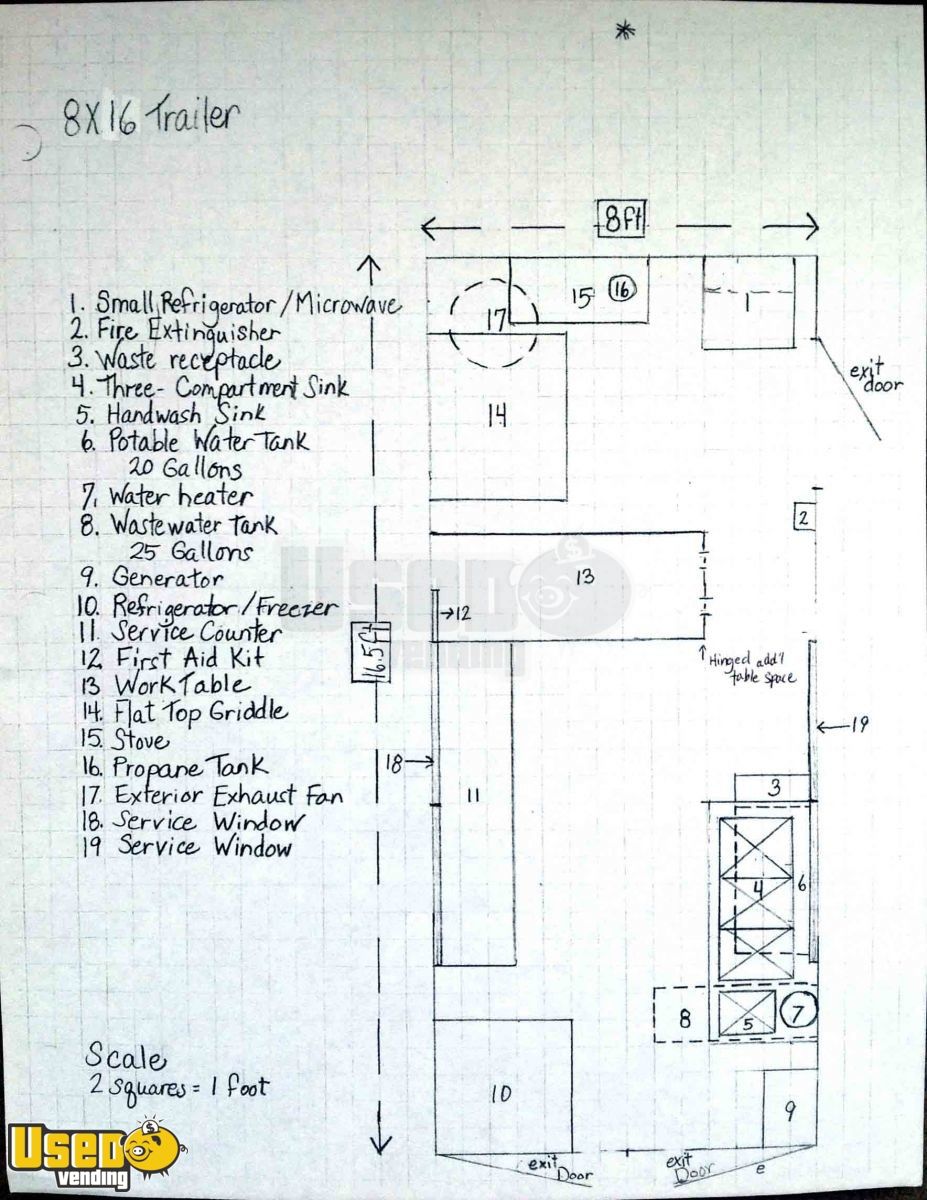 *
8X16 Trailer
8ft
16.5ft
1. Small Refrigerator/Microwave
2. Fire Extinguisher
3. Waste receptacle
4. Three-Compartment Sink
5. Handwash Sink
6. Potable Water Tank
20 Gallons
7. Water heater
8. Wastewater Tank
25 Gallons
9. Generator
10. Refrigerator/Freezer
11. Service Counter
12. First Aid Kit
13. Work Table
14. Flat Top Griddle
15. Stove
16. Propane Tank
17. Exterior Exhaust Fan
18. Service Window
19 Service Window
17
15
16
1
exit
door
14
2
13
→12
↑ Hinged add'l
table space
18→
←19
11
3
4
6
8
5
7
10
9
exit
Door
exit
Door
e
Scale
2 squares = 1 foot
USED
vending
USED
vending